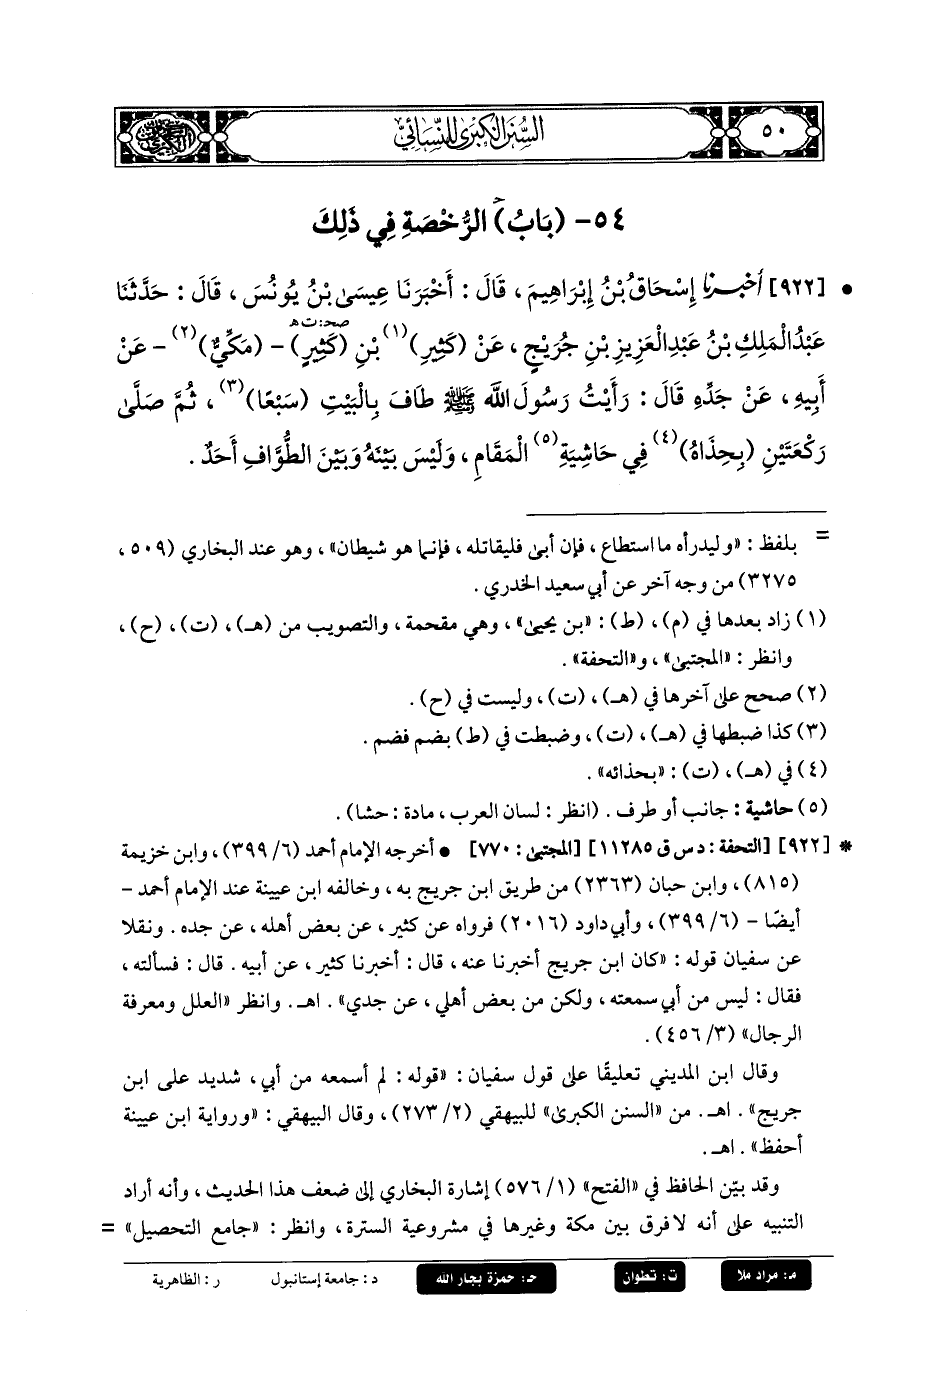 السنن الكبرى للنسائي
٥٠
٥٤- (بَابُ) الرُّخْصَةِ فِي ذَلِكَ
• [٩٢٢] أخبرنا إِسْحَاقُ بْنُ إِبْرَاهِيمَ، قَالَ: أَخْبَرَنَا عِيسَى بْنُ يُونُسَ، قَالَ: حَدَّثَنَا
عَبْدُ الْمَلِكِ بْنُ عَبْدِ الْعَزِيزِ بْنِ جُرَيْجٍ، عَنْ (كَثِيرِ)(١) بْنِ (كَثِيرٍ) - (مَكِّيٌّ)(٢) - عَنْ
صحـ: ت هـ
أَبِيهِ، عَنْ جَدِّهِ قَالَ: رَأَيْتُ رَسُولَ اللَّه ﷺ طَافَ بِالْبَيْتِ (سَبْعًا)(٣)، ثُمَّ صَلَّى
رَكْعَتَيْنِ (بِحِذَاهُ)(٤) فِي حَاشِيَةِ(٥) الْمَقَامِ، وَلَيْسَ بَيْنَهُ وَبَيْنَ الطُّوَّافِ أَحَدٌ.
= بلفظ: «وليدرأه ما استطاع، فإن أبى فليقاتله، فإنما هو شيطان»، وهو عند البخاري (٥٠٩،
٣٢٧٥) من وجه آخر عن أبي سعيد الخدري.
(١) زاد بعدها في (م)، (ط): «بن يحيى»، وهي مقحمة، والتصويب من (هـ)، (ت)، (ح)،
وانظر: «المجتبى»، و«التحفة».
(٢) صحح على آخرها في (هـ)، (ت)، وليست في (ح).
(٣) كذا ضبطها في (هـ)، (ت)، وضبطت في (ط) بضم فضم.
(٤) في (هـ)، (ت): «بحذائه».
(٥) حاشية: جانب أو طرف. (انظر: لسان العرب، مادة: حشا).
* [٩٢٢] [التحفة: د س ق ١١٢٨٥] [المجتبى: ٧٧٠] • أخرجه الإمام أحمد (٦/ ٣٩٩)، وابن خزيمة
(٨١٥)، وابن حبان (٢٣٦٣) من طريق ابن جريج به، وخالفه ابن عيينة عند الإمام أحمد -
أيضًا - (٦/ ٣٩٩)، وأبي داود (٢٠١٦) فرواه عن كثير، عن بعض أهله، عن جده. ونقلا
عن سفيان قوله: «كان ابن جريج أخبرنا عنه، قال: أخبرنا كثير، عن أبيه. قال: فسألته،
فقال: ليس من أبي سمعته، ولكن من بعض أهلي، عن جدي». اهـ. وانظر «العلل ومعرفة
الرجال» (٣/ ٤٥٦).
وقال ابن المديني تعليقًا على قول سفيان: «قوله: لم أسمعه من أبي، شديد على ابن
جريج». اهـ. من «السنن الكبرى» للبيهقي (٢/ ٢٧٣)، وقال البيهقي: «ورواية ابن عيينة
أحفظ». اهـ.
وقد بيّن الحافظ في «الفتح» (١/ ٥٧٦) إشارة البخاري إلى ضعف هذا الحديث، وأنه أراد
التنبيه على أنه لا فرق بين مكة وغيرها في مشروعية السترة، وانظر: «جامع التحصيل» =
مـ: مراد ملا ت: تطوان حـ: حمزة بجار الله د: جامعة إستانبول ر: الظاهرية